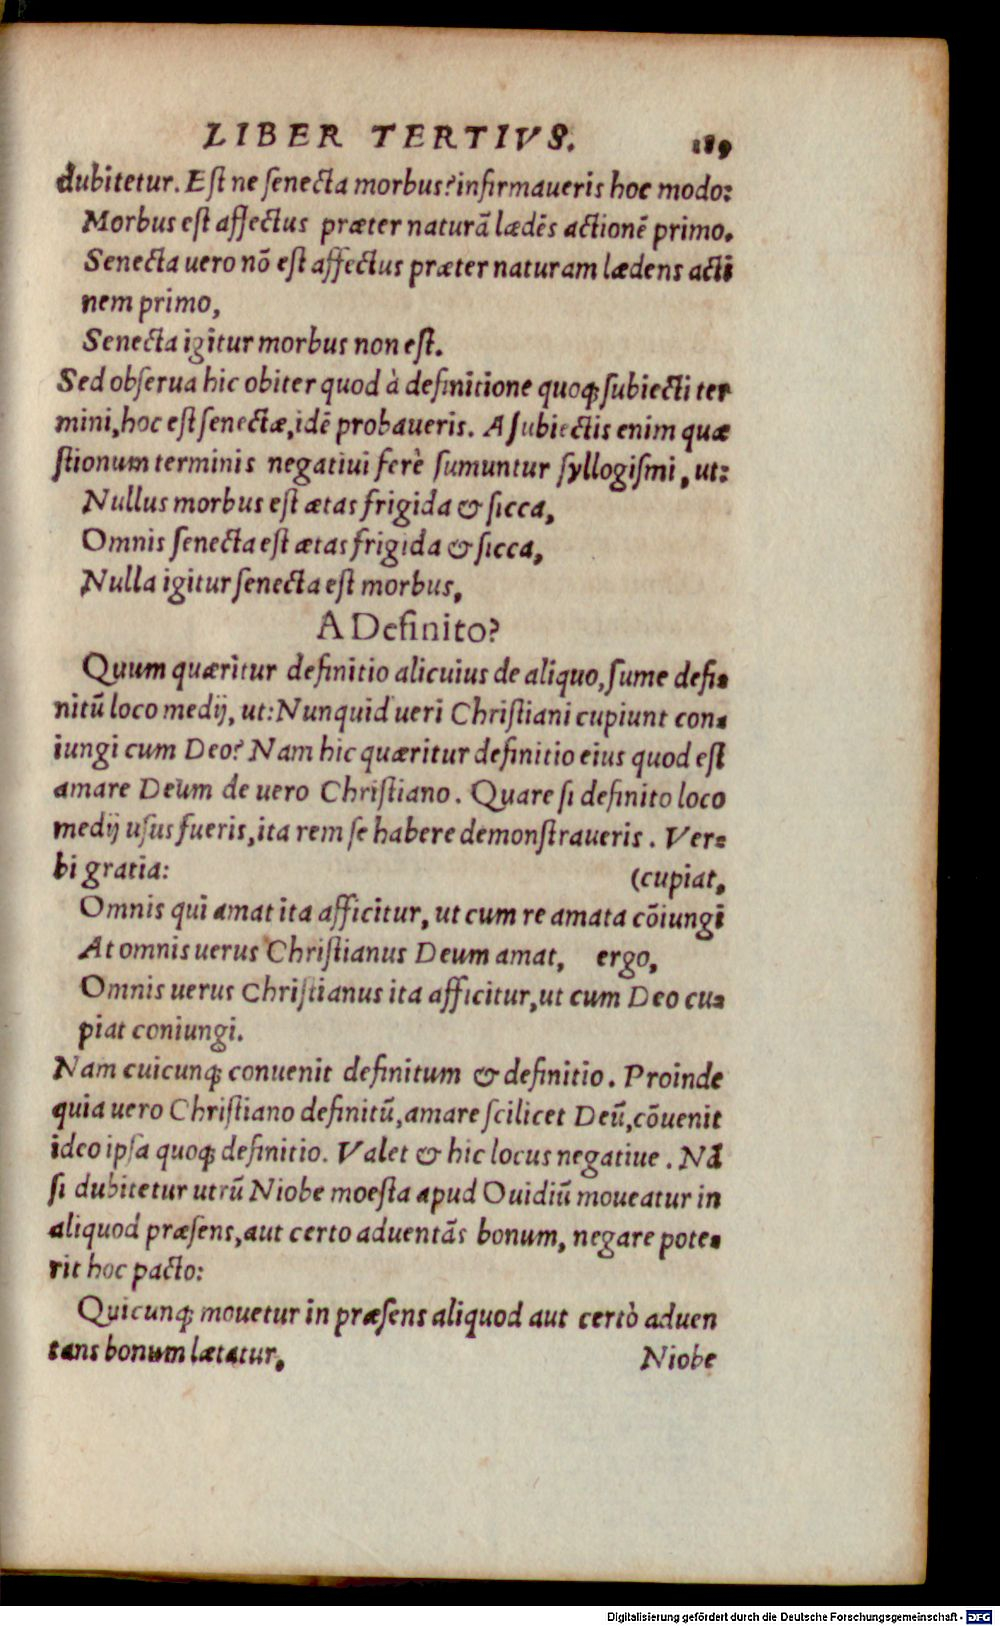 LIBER TERTIVS. 189
dubitetur. Est ne senecta morbus? infirmaueris hoc modo:
Morbus est affectus præter naturã lædẽs actionẽ primo.
Senecta uero nõ est affectus præter naturam lædens acti
nem primo,
Senecta igitur morbus non est.
Sed obserua hic obiter quod à definitione quoq; subiecti ter
mini, hoc est senectæ, idẽ probaueris. A subiectis enim quæ
stionum terminis negatiui ferè sumuntur syllogismi, ut:
Nullus morbus est ætas frigida & sicca,
Omnis senecta est ætas frigida & sicca,
Nulla igitur senecta est morbus,
A Definito?
Quum quæritur definitio alicuius de aliquo, sume defi-
nitũ loco medij, ut: Nunquid ueri Christiani cupiunt con-
iungi cum Deo? Nam hic quæritur definitio eius quod est
amare Deum de uero Christiano. Quare si definito loco
medij usus fueris, ita rem se habere demonstraueris. Ver-
bi gratia: (cupiat,
Omnis qui amat ita afficitur, ut cum re amata cõiungi
At omnis uerus Christianus Deum amat, ergo,
Omnis uerus Christianus ita afficitur, ut cum Deo cu-
piat coniungi.
Nam cuicunq; conuenit definitum & definitio. Proinde
quia uero Christiano definitũ, amare scilicet Deũ, cõuenit
ideo ipsa quoq; definitio. Valet & hic locus negatiue. Nã
si dubitetur utrũ Niobe moesta apud Ouidiũ moueatur in
aliquod præsens, aut certo aduentãs bonum, negare pote-
rit hoc pacto:
Quicunq; mouetur in præsens aliquod aut certò aduen
tans bonum lætatur. Niobe
Digitalisierung gefördert durch die Deutsche Forschungsgemeinschaft - DFG